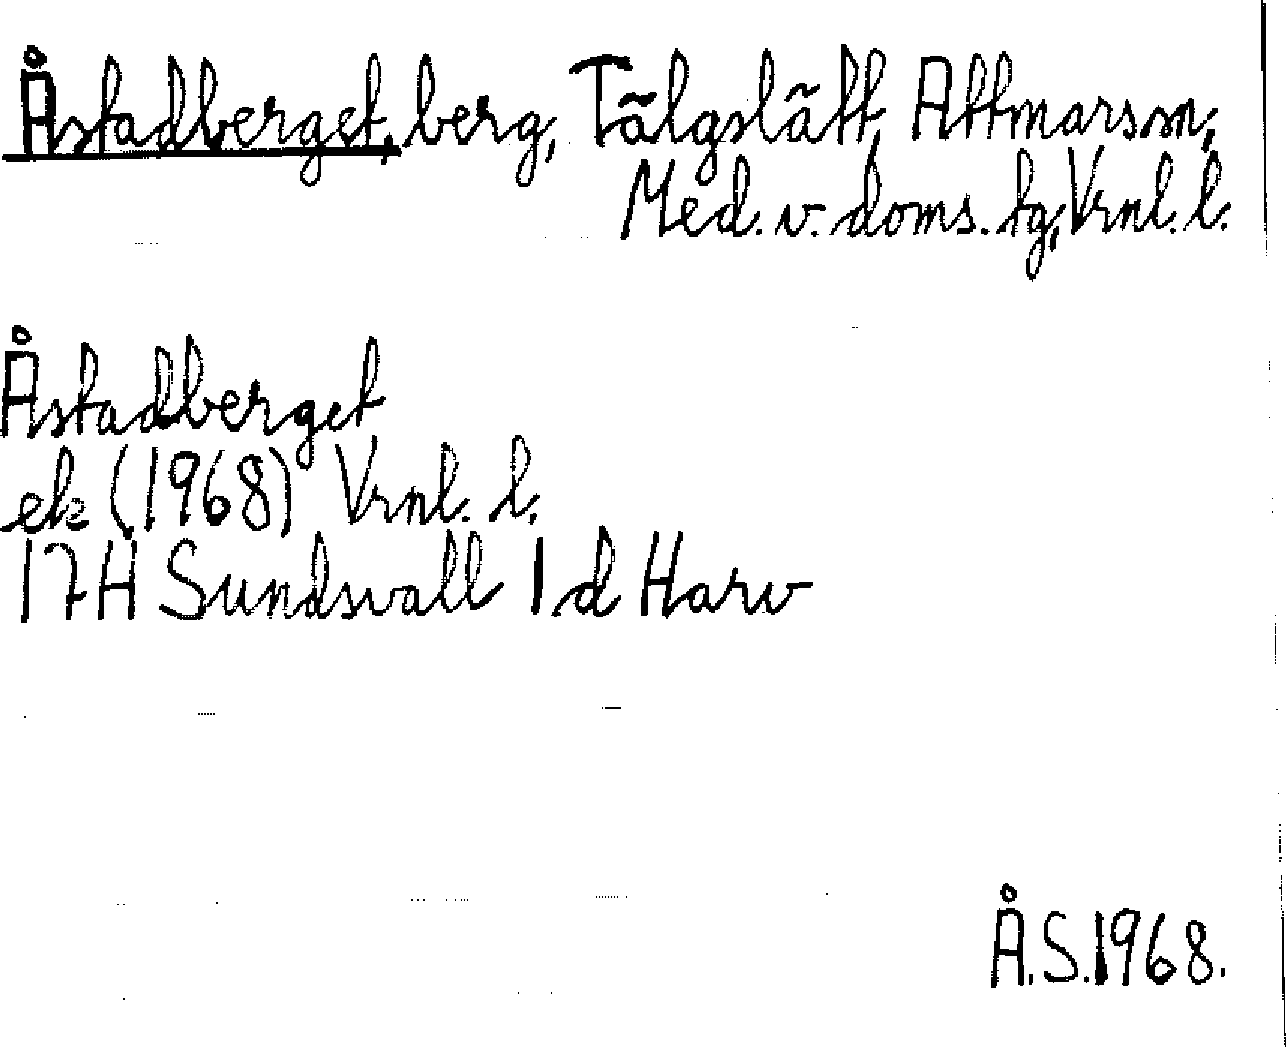 Åstadberget, berg, Tälgslätt, Attmars sn,
Med. v. doms. tg, Vrnl. l.
Åstadberget
ek (1968) Vrnl. l.
17H Sundsvall 1 d Harv
Å.S.1968.